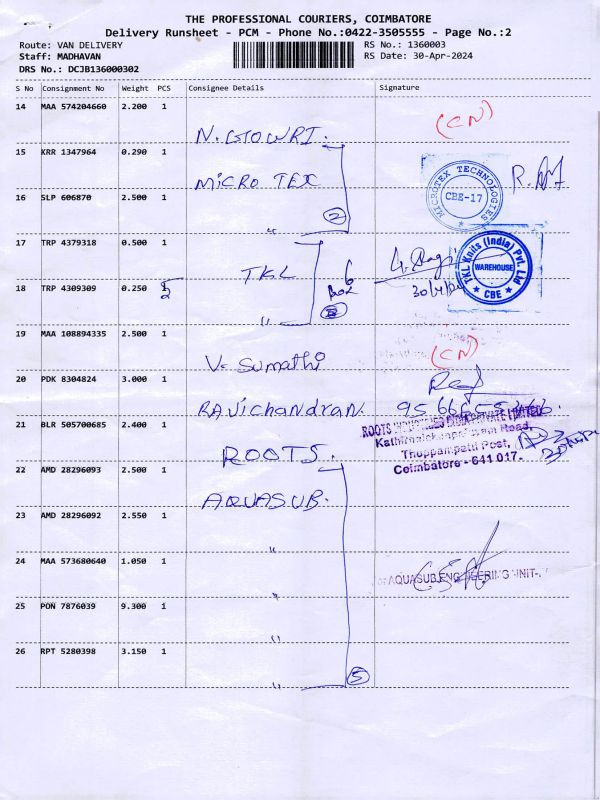 THE PROFESSIONAL COURIERS, COIMBATORE
Delivery Runsheet - PCM - Phone No.:0422-3505555 - Page No.:2
Route: VAN DELIVERY
RS No.: 1360003
Staff: MADHAVAN
RS Date: 30-Apr-2024
DRS No.: DCJB136000302
S No Consignment No Weight PCS Consignee Details Signature
14 MAA 574204660 2.200 1
N. GOWRI. (CN)
15 KRR 1347964 0.290 1
MICRO TEX
MICROTEX TECHNOLOGIES
CBE-17
16 SLP 606870 2.500 1
" 2
17 TRP 4379318 0.500 1
TKL
TKL Knits (India) Pvt. Ltd
WAREHOUSE
CBE
18 TRP 4309309 0.250
"
19 MAA 108894335 2.500 1
V. Sumathi (CN)
20 PDK 8304824 3.000 1
RAVichandran.
21 BLR 505700685 2.400 1
ROOTS.
Thoppampatti Post,
Coimbatore - 641 017.
22 AMD 28296093 2.500 1
AQUASUB.
23 AMD 28296092 2.550 1
"
24 MAA 573680640 1.050 1
AQUASUB ENGINEERING UNIT-
"
25 PON 7876039 9.300 1
"
26 RPT 5280398 3.150 1
" 5